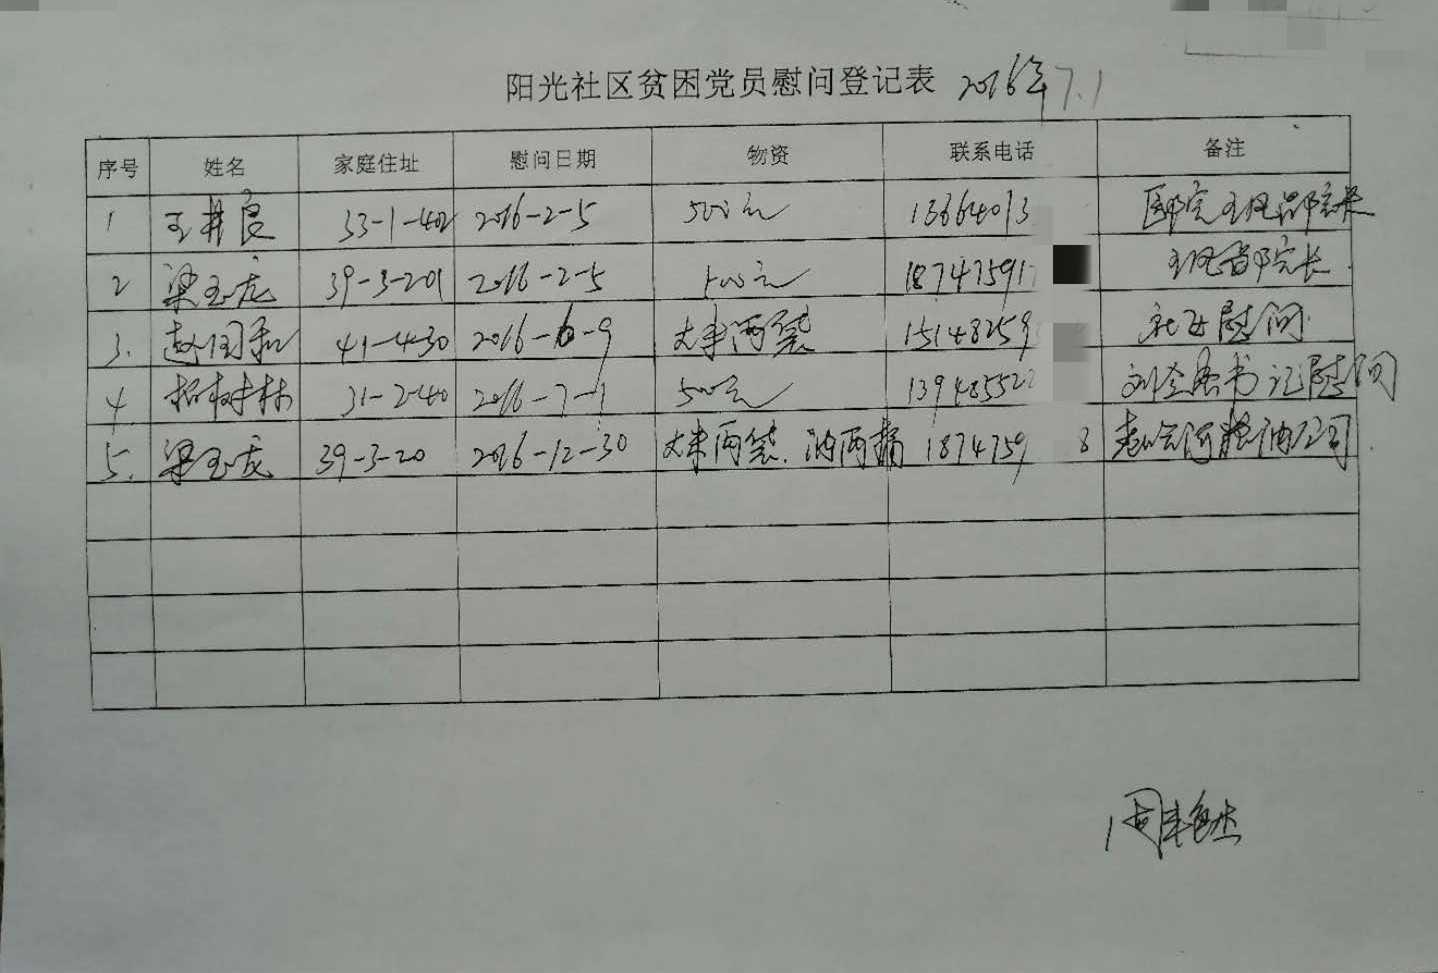 阳光社区贫困党员慰问登记表 2016年7.1
序号 姓名 家庭住址 慰问日期 物资 联系电话 备注
1 王井良 33-1-402 2016-2-5 500元 13664013
2 梁玉龙 39-3-201 2016-2-5 500元 187475917
3. 赵国和 41-4-30 2016-6-9 大米两袋 15148259 社区慰问
4 树林 31-2-40 2016-7-1 500元 139485522 书记慰问
5. 梁玉龙 39-3-20 2016-12-30 大米两袋.油两桶 1874759 8 老哈河粮油公司